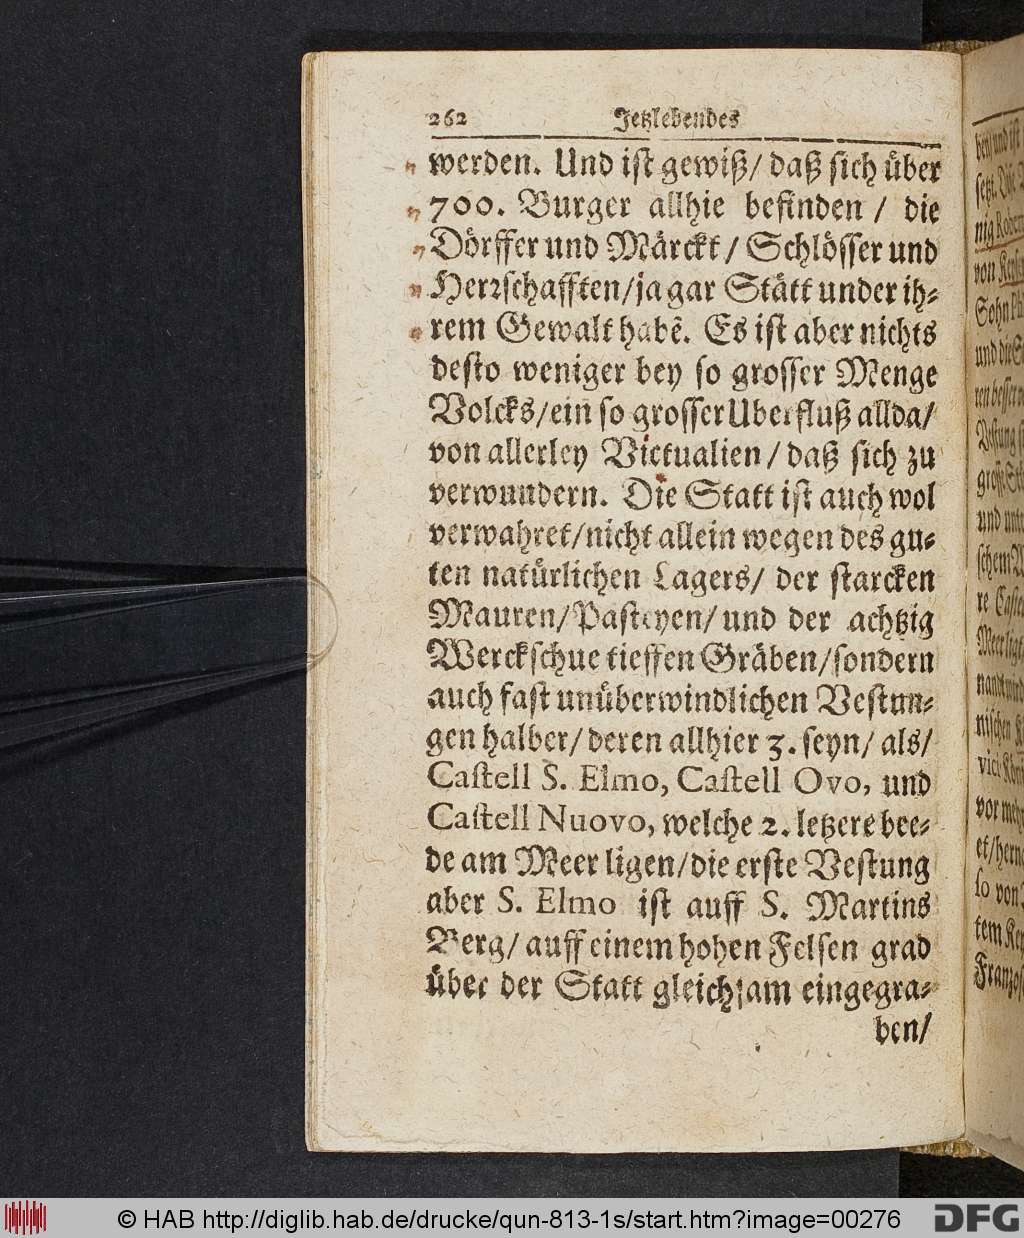 262 Jetzlebendes
werden. Und ist gewiß/ daß sich über
700. Burger allhie befinden / die
Dörffer und Märckt/ Schlösser und
Herrschafften/ja gar Stätt under ih-
rem Gewalt habẽ. Es ist aber nichts
desto weniger bey so grosser Menge
Volcks/ein so grosser Uberfluß allda/
von allerley Victualien/ daß sich zu
verwundern. Die Statt ist auch wol
verwahret/nicht allein wegen des gu-
ten natürlichen Lagers/ der starcken
Mauren/Pasteyen/ und der achtzig
Werckschue tieffen Gräben/sondern
auch fast unüberwindlichen Vestun-
gen halber/ deren allhier 3. seyn/ als/
Castell S. Elmo, Castell Ovo, und
Castell Nuovo, welche 2. letzere bee-
de am Meer ligen/die erste Vestung
aber S. Elmo ist auff S. Martins
Berg/ auff einem hohen Felsen grad
über der Statt gleichsam eingegra-
ben/
© HAB http://diglib.hab.de/drucke/qun-813-1s/start.htm?image=00276
DFG